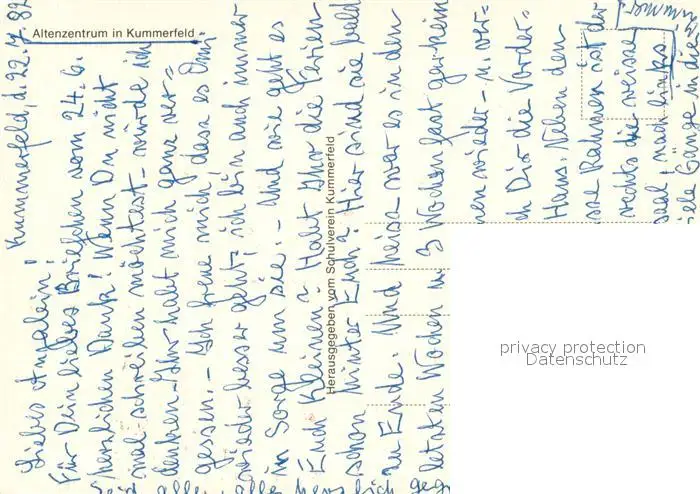 Altenzentrum in Kummerfeld
Herausgegeben vom Schulverein Kummerfeld
privacy protection
Datenschutz
Kummerfeld, d. 22.7.82
Liebes Angelein!
Für Dein liebes Briefchen vom 24.6.
herzlichen Dank! Wenn Du nicht
mal schreiben möchtest – würde ich
denken – Ihr habt mich ganz ver=
gessen. – Ich freue mich, dass es Dir
wieder besser geht; ich bin auch immer
in Sorge um sie. – Und wie geht es
Euch Kleinen? Habt Ihr die Ferien
schon hinter Euch? Hier sind sie bald
zu Ende. Und heiss war es in den
letzten Wochen u. 3 Wochen fast gar kein
nen wieder – u. ver=
ch Dir die Vorder=
Haus. Neben den
sse Rahmen ist der
rechts die weisse
nach links
viele Gänge in dies
Seid alle, alle herzlich geg